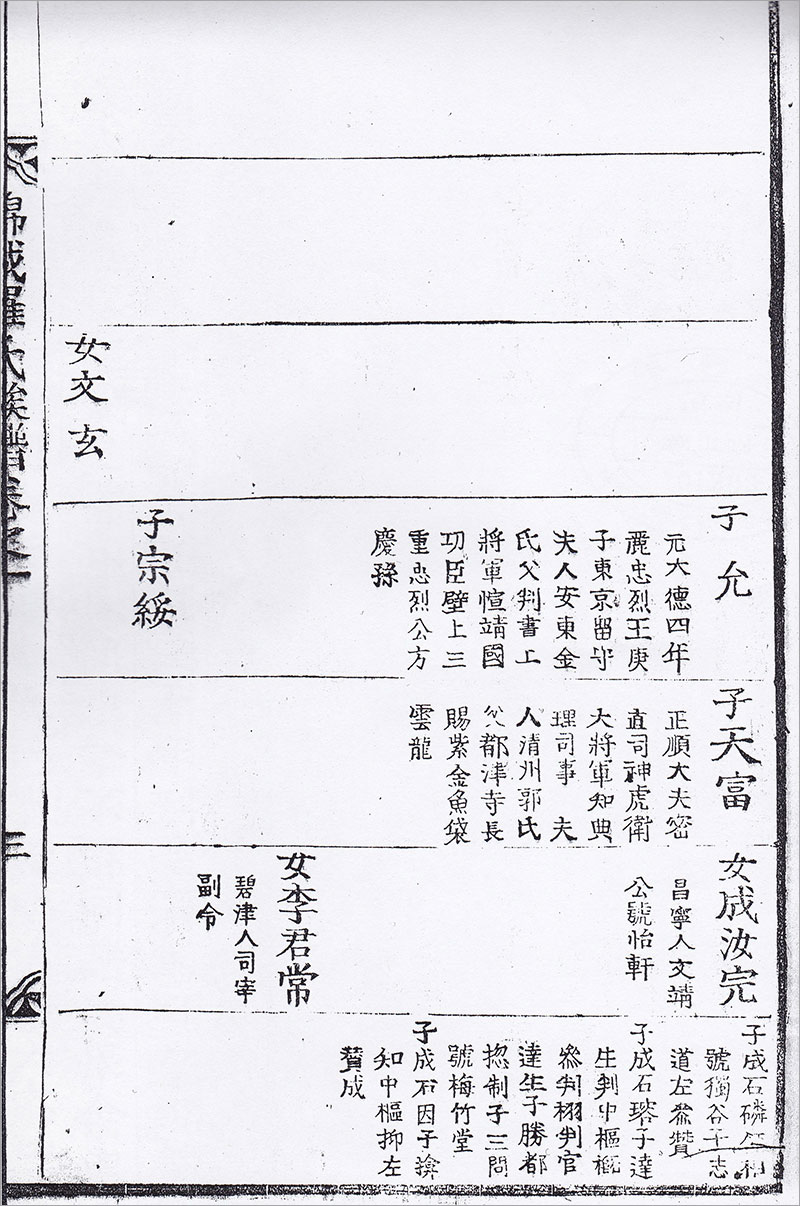 女文玄
子允
元大德四年
麗忠烈王庚
子東京留守
夫人安東金
氏父判書上
將軍愃靖國
功臣壁上三
重忠烈公方
慶孫
子宗綏
子天富
正順大夫密
直司神虎衛
大將軍知典
理司事 夫
人清州郭氏
父都津寺長
賜紫金魚袋
雲龍
女成汝完
昌寧人文靖
公號怡軒
女李君常
碧津人司宰
副令
子成石磷相
號獨谷子志
道左叅贊
子成石瑢子達
生判中樞槪
叅判栩判官
達生子勝都
惣制子三問
號梅竹堂
子成石因子揜
知中樞抑左
贊成
錦城羅氏族譜卷之一
三